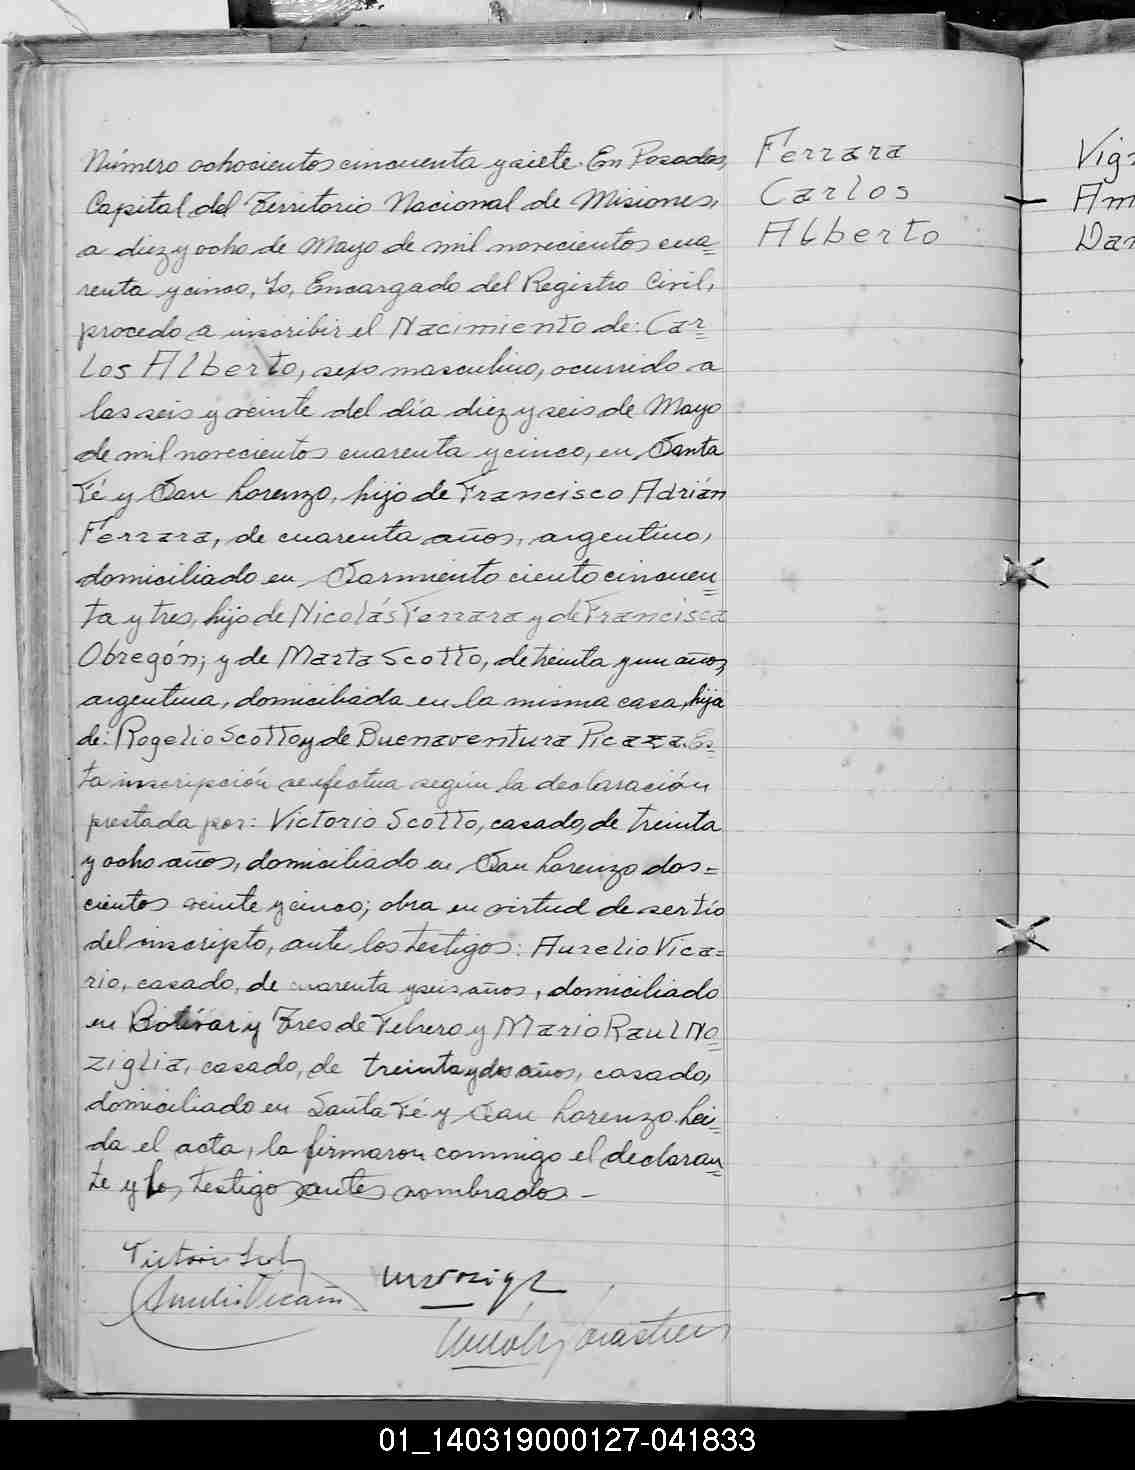 Número ochocientos cincuenta y siete. En Posadas,
Capital del Territorio Nacional de Misiones,
a diez y ocho de Mayo de mil novecientos cua=
renta y cinco, Yo, Encargado del Registro Civil,
procedo a inscribir el Nacimiento de: Car=
los Alberto, sexo masculino, ocurrido a
las seis y veinte del día diez y seis de Mayo
de mil novecientos cuarenta y cinco, en Santa
Fé y San Lorenzo, hijo de Francisco Adrián
Ferrara, de cuarenta años, argentino,
domiciliado en Sarmiento ciento cincuen=
ta y tres, hijo de Nicolás Ferrara y de Francisca
Obregón; y de Marta Scotto, de treinta y un años,
argentina, domiciliada en la misma casa, hija
de: Rogelio Scotto y de Buenaventura Picaza. Es=
ta inscripción se efectua según la declaración
prestada por: Victorio Scotto, casado, de treinta
y ocho años, domiciliado en San Lorenzo dos=
cientos veinte y cinco; obra en virtud de ser tío
del inscripto, ante los testigos: Aurelio Vica=
rio, casado, de cuarenta y seis años, domiciliado
en Bolívar y Tres de Febrero y Mario Raul No=
ziglia, casado, de treinta y dos años, casado,
domiciliado en Santa Fé y San Lorenzo. Leí=
da el acta, la firmaron conmigo el declaran=
te y los testigos antes nombrados.-
Aurelio Vicario
Ferrara
Carlos
Alberto
Vig
Am
Dan
01_140319000127-041833